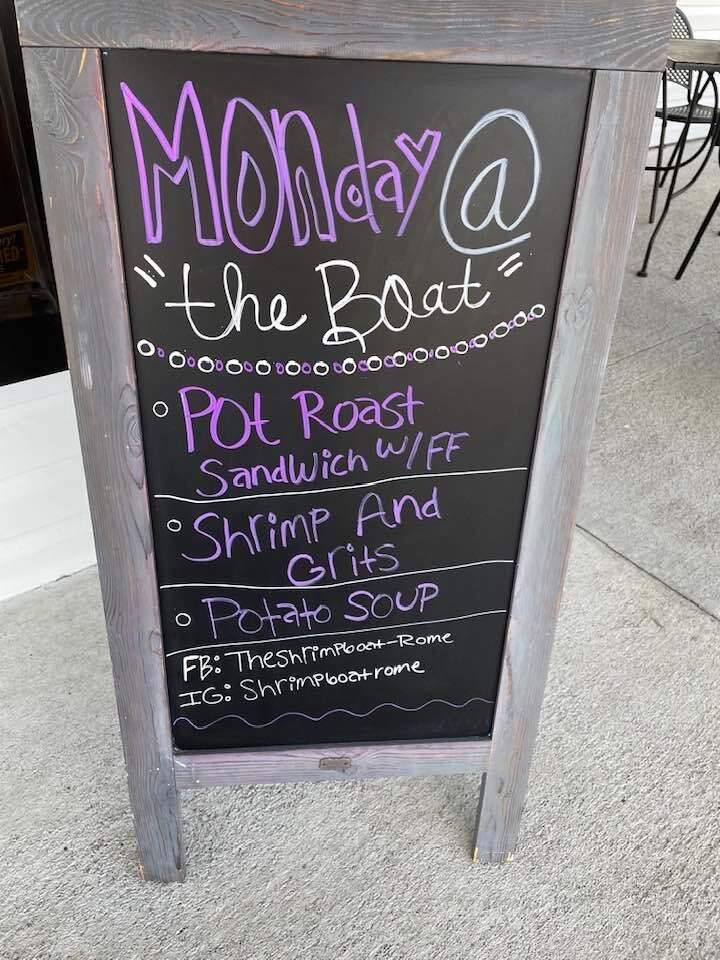 Monday @
"the Boat"
Pot Roast
Sandwich W/FF
Shrimp And
Grits
Potato Soup
FB: Theshrimpboat-Rome
IG: Shrimpboatrome